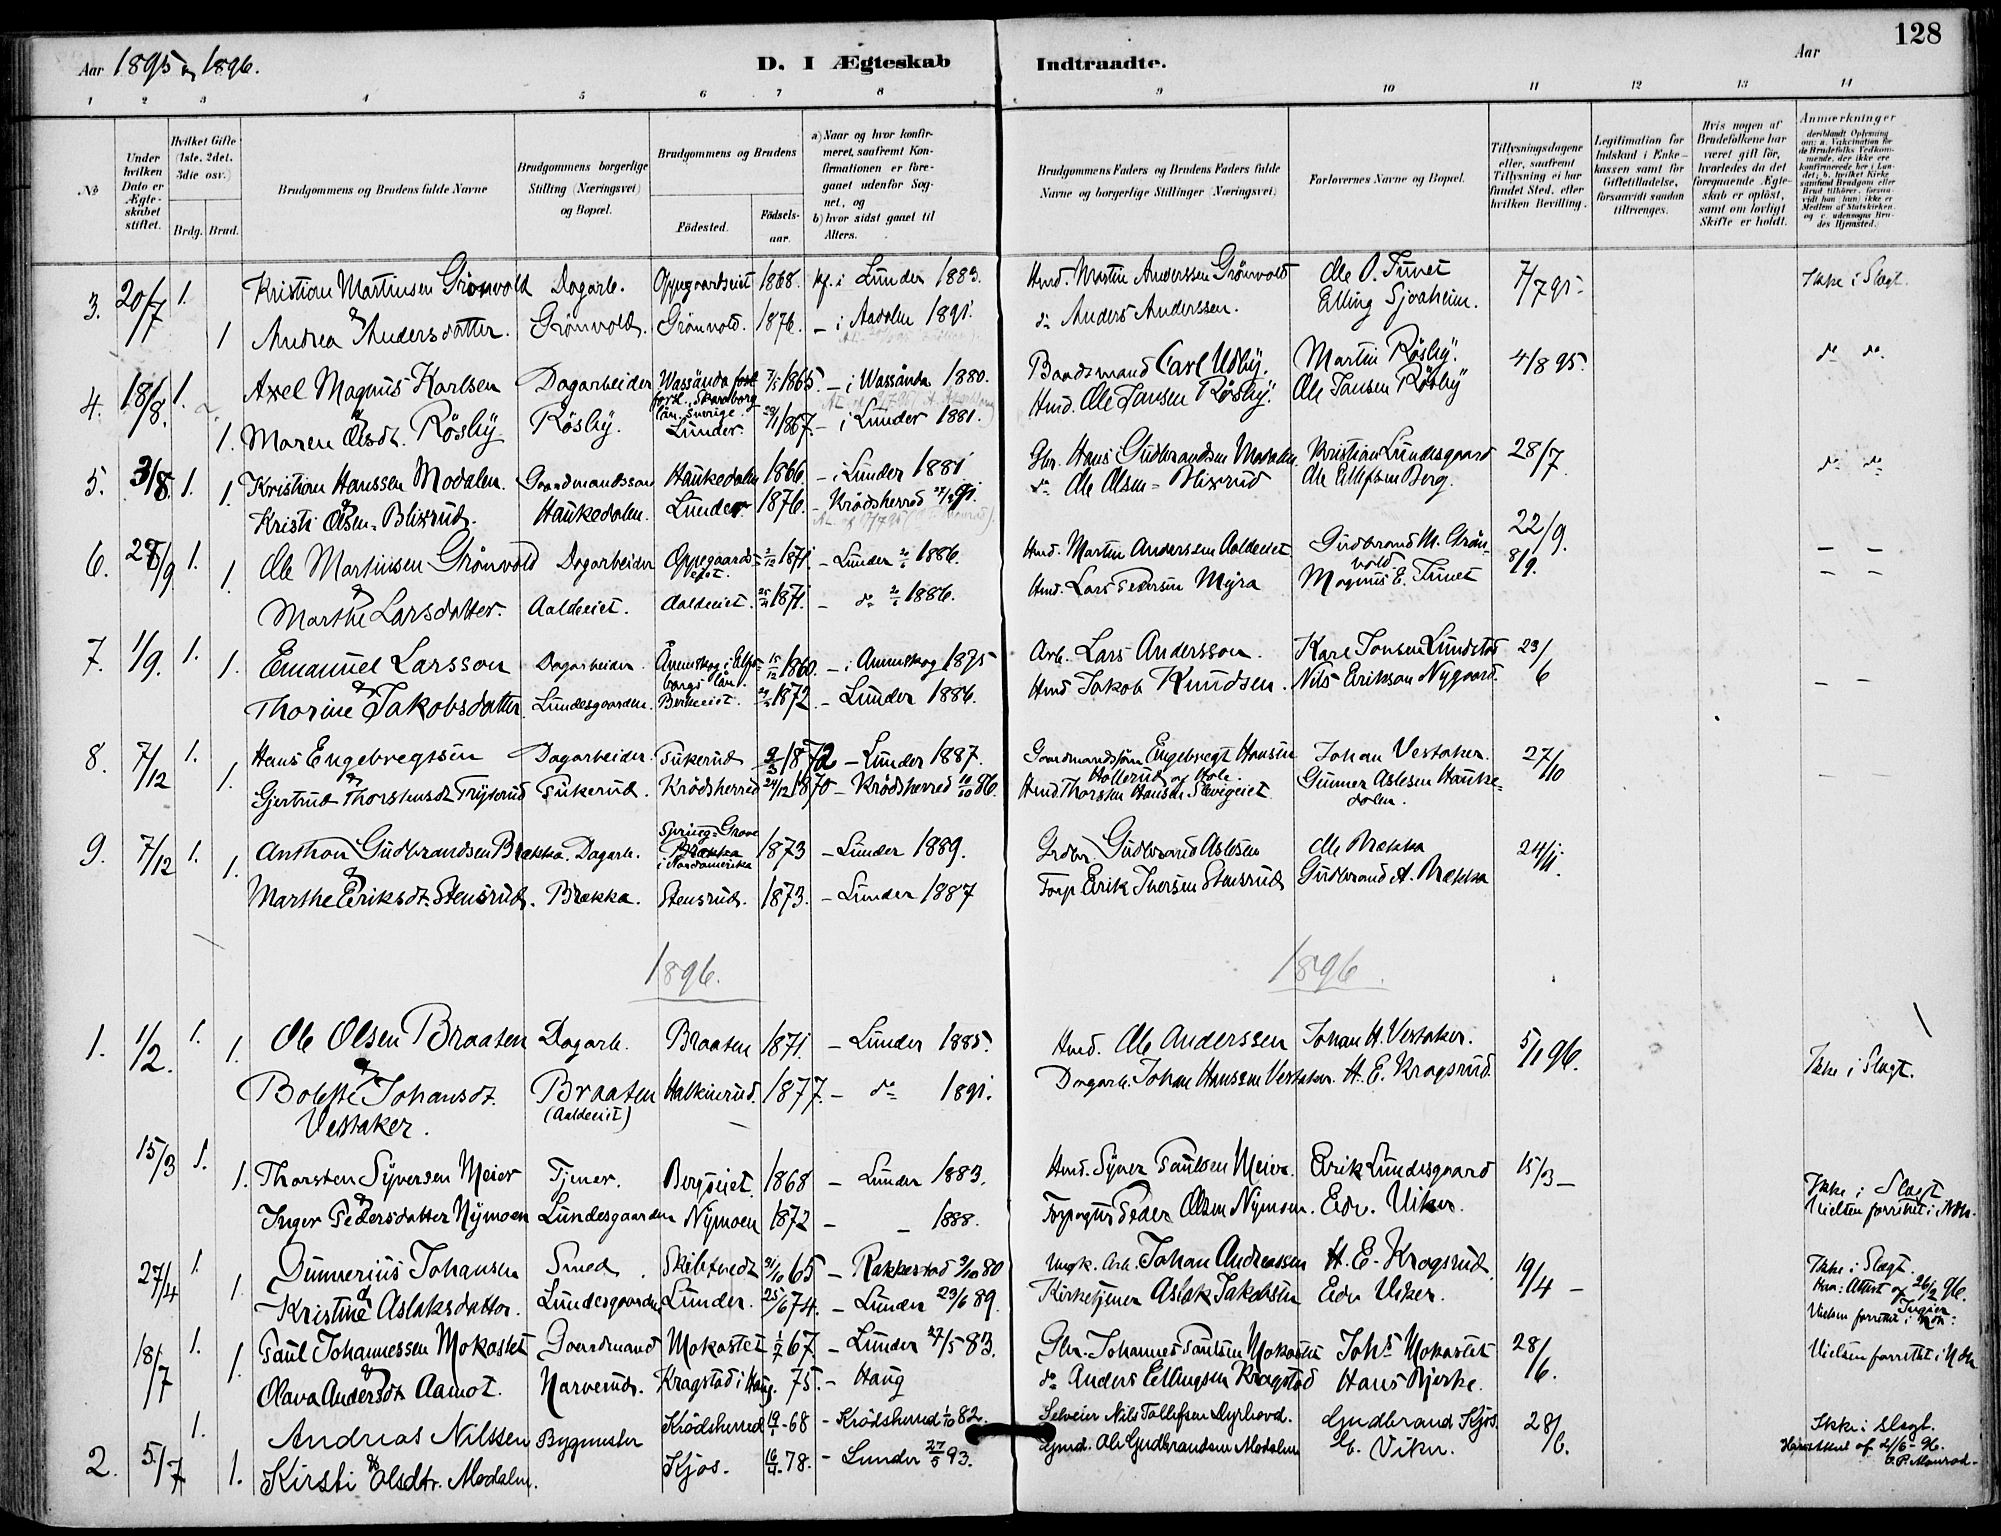 128
Aar 1895 og 1896.
D. I Ægteskab Indtraadte.
Aar
1 2 3 4 5 6 7 8 9 10 11 12 13 14
No
Under hvilken Dato er Ægteskabet stiftet.
Hvilket Gifte (1ste, 2det, 3die osv.)
Brdg. Brud.
Brudgommens og Brudens fulde Navne
Brudgommens borgerlige Stilling (Næringsvei) og Bopæl.
Brudgommens og Brudens
Födested.
Födsels-aar.
a) Naar og hvor konfirmeret, saafremt Konfirmationen er foregaaet udenfor Sognet, og
b) hvor sidst gaaet til Alters.
Brudgommens Faders og Brudens Faders fulde Navne og borgerlige Stillinger (Næringsvei)
Forlovernes Navne og Bopæl.
Tillysningsdagene eller, saafremt Tillysning ei har fundet Sted, efter hvilken Bevilling.
Legitimation for Indskud i Enkekassen samt for Giftetilladelse, forsaavidt saadan tiltrænges.
Hvis nogen af Brudefolkene har været gift för, hvorledes da det foregaaende Ægteskab er oplöst, samt om lovligt Skifte er holdt.
Anmærkninger
3. 20/7 1. Kristian Martinsen Grönvold Dagarb. Oppegaardseiet 1868. kf. i Lunder 1883. Hmd. Martin Anderssen Grönvold Ole O. Tunet 7/7 95. Ikke i Slægt.
1 & Andrea Andersdatter. Grönvold. Grönvold. 1876. – i Aadalen 1891. do Anders Anderssen. Elling Sjoaheim.
4. 18/8. 1. Axel Magnus Karlsen Dagarbeider Wassända 7/5 1865. – i Wassända 1880. Baadsmand Carl Udby. Martin Rösby. 4/8 95. do do.
Skaraborg län. Sverige.
1. & Maren Olsdt. Rösby Rösby. Lunder. 1867. – i Lunder 1881. Hmd. Ole Jansen Rösby. Ole Jansen Rösby
5. 3/8. 1. 1. Kristian Hanssen Modalen. Gaardmandssön Haukedalen 1866 – i Lunder 1881 Gbr. Hans Gudbrandsen Modalen. Kristian Lundesgaard 28/7. do do
& Kristi Olsen-Blixrud. Haukedalen. Lunder 1876. – Krödsherred 91. do Ole Olsen-Blixrud Ole Ellefsen Berg.
6. 28/9 1. 1. Ole Martinsen Grönvold Dagarbeider Oppegaardseiet. 1871. – Lunder 1886. Hmd. Martin Andersen Aaldeeiet Gudbrand M. Grönvold 22/9. – –
& Marthe Larsdatter. Aaldeeiet. Aaldeeiet. 1871. – do 1886. Hmd. Lars Pedersen Myra Magnus E. Tunet 8/9. – –
7. 1/9. 1. 1. Emanuel Larsson Dagarbeider. Ånimskog i Elfsborgs län. 15/12 1860. – i Animskog 1875 Arb. Lars Andersson. Karl Jonsen Lundstad 23/6
& Thorine Jakobsdatter. Lundesgaarden. Berkeeiet. 1872. – Lunder 1886. Hmd Jakob Knudsen. Nils Erikson Nygaard. – –
8. 7/12 1. 1. Hans Engebregtsen Dagarbeider. Tukerud 2/3 1872 – Lunder 1887. Gaardmandssön Engebregt Hansen Hollerud af Hole. Johan Vestaker. 27/10
& Gjertrud Thorstensdt Frÿserud Tukerud. Krödsherred 24/12 1870 – Krödsherred 10/10 86. Hmd. Thorsten Hansen Slevigeiet Gunner Aslesen Haukedalen. –
9. 7/12 1. 1. Anthon Gudbrandsen Brækka. Dagarb. Spring-Grove i Nordamerika 1873 – Lunder 1889. Grdbr. Gudbrand Aslesen Ole Brækka 24/11.
& Marthe Eriksdt. Stensrud. Brækka. Stensrud. 1873. – Lunder 1887 Forp Erik Iversen Stensrud Gudbrand A. Brækka
1896. 1896.
1. 1/2. 1. 1. Ole Olsen Braaten Dagarb. Braaten 1871. – Lunder 1885. Hmd. Ole Anderssen Johan H. Vestaker. 5/1 96. Ikke i Slægt.
& Bolette Johansdt. Vestaker. Braaten (Aaldeeiet) Halkinrud. 1877. – do 1891. Dagarb. Johan Hansen Vestaker. H. E. Kragsrud.
15/3 1. 1. Thorsten Syversen Meier Tjener. Bergseiet. 1868 – Lunder 1883. Hmd. Syver Paulsen Meier. Erik Lundesgaard 15/3 – Ikke i Slægt
& Inger Pedersdatter Nymoen Lundesgaarden Nymoen 1872 – – 1888. Forpagter Peder Olsen Nymoen. Edv. Viker. Vielsen forrettet i Ndh.
27/4 1. 1. Gunnerius Johansen Smed. Skibtvedt 31/10 65 – Rakkestad 3/10 80 Johan Andreassen H. E. Kragsrud. 19/4 – Ikke i Slægt.
& Kristine Aslaksdatter. Lundesgaarden Lunder. 25/6 74. – Lunder 23/6 89. Kirketjener Aslak Jakobsen Edv Viker. Attest af 26/2 96.
18/7 1. 1. Paul Johannessen Mokastet Gaardmand Mokastet 1/2 67. – Lunder 27/5 83. Gbr. Johannes Paulsen Mokastet Johs Mokastet 28/6. Vielsen forrettet i Ndh
& Olava Andersdt Aamot. Narverud. Kragstad i Haug. 75. – Haug do Anders Ellingsen Kragstad Hans Bjerke.
2. 5/7 1. Andreas Nilssen Bygmester Krödsherred 19/1 – 68 – Krödsherred 1/10 82. Selveier Nils Tollefsen Dyrhovd. Gudbrand Kjös. 28/6. Ikke i Slægt.
1. & Kirsti Olsdtr. Modalen. Kjøs. 16/4 78. – Lunder 27/5 93. Gmd. Ole Gudbrandsen Modalen E. Viker.